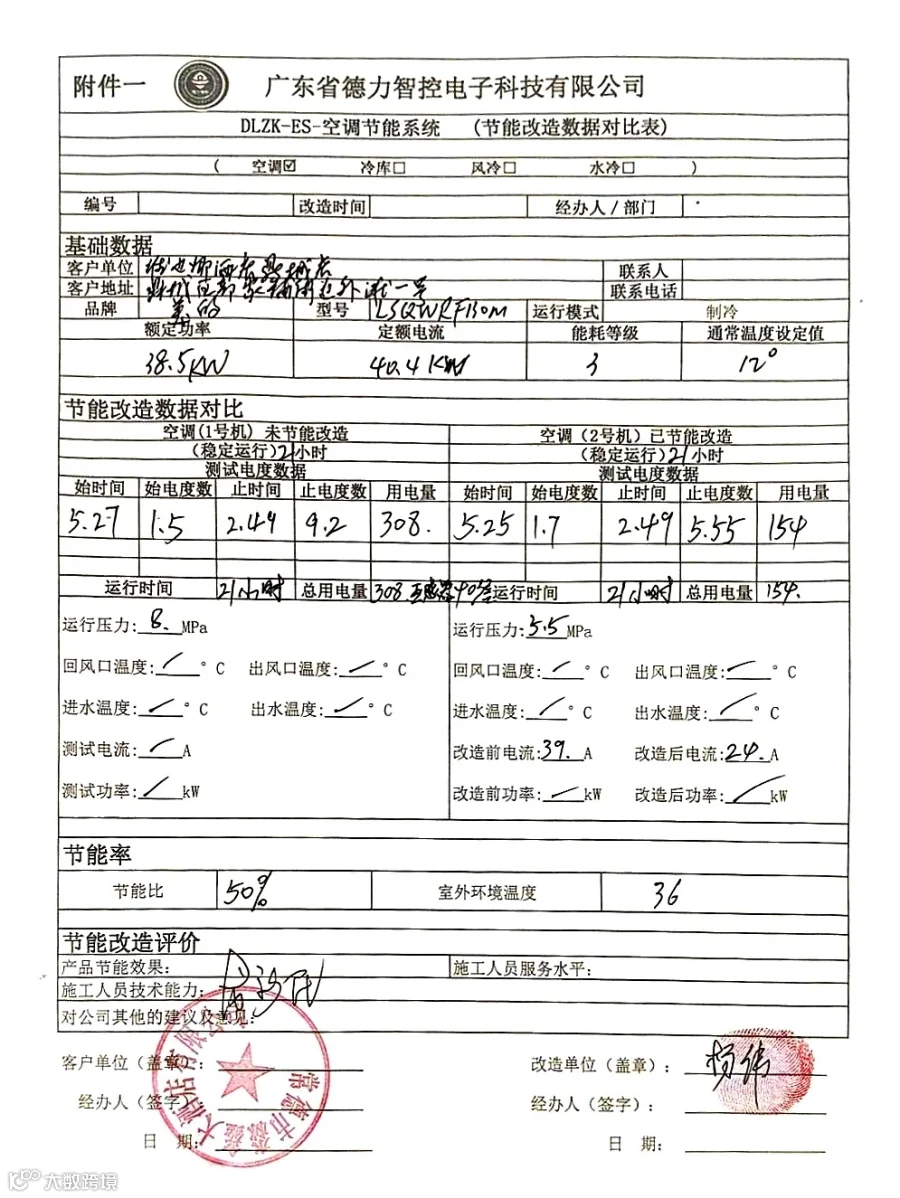 附件一 广东省德力智控电子科技有限公司
DLZK-ES-空调节能系统 (节能改造数据对比表)
( 空调☑ 冷库□ 风冷□ 水冷□ )
编号 改造时间 经办人/部门
基础数据
客户单位 联系人
客户地址 联系电话
品牌 美的 型号 LSQWRF130M 运行模式 制冷
额定功率 定额电流 能耗等级 通常温度设定值
38.5KW 40.4KW 3 12°
节能改造数据对比
空调(1号机) 未节能改造 空调(2号机)已节能改造
(稳定运行)21小时 (稳定运行)21小时
测试电度数据 测试电度数据
始时间 始电度数 止时间 止电度数 用电量 始时间 始电度数 止时间 止电度数 用电量
5.27 1.5 2.49 9.2 308. 5.25 1.7 2.49 5.55 154
运行时间 21小时 总用电量 308 互感器40倍 运行时间 21小时 总用电量 154.
运行压力: 8. MPa 运行压力: 5.5 MPa
回风口温度: °C 出风口温度: °C 回风口温度: °C 出风口温度: °C
进水温度: °C 出水温度: °C 进水温度: °C 出水温度: °C
测试电流: A 改造前电流: 39. A 改造后电流: 24. A
测试功率: kW 改造前功率: kW 改造后功率: kW
节能率
节能比 50% 室外环境温度 36
节能改造评价
产品节能效果: 施工人员服务水平:
施工人员技术能力:
对公司其他的建议及意见:
客户单位(盖章): 改造单位(盖章): 杨伟
经办人(签字): 经办人(签字):
日 期: 日 期:
大数跨境